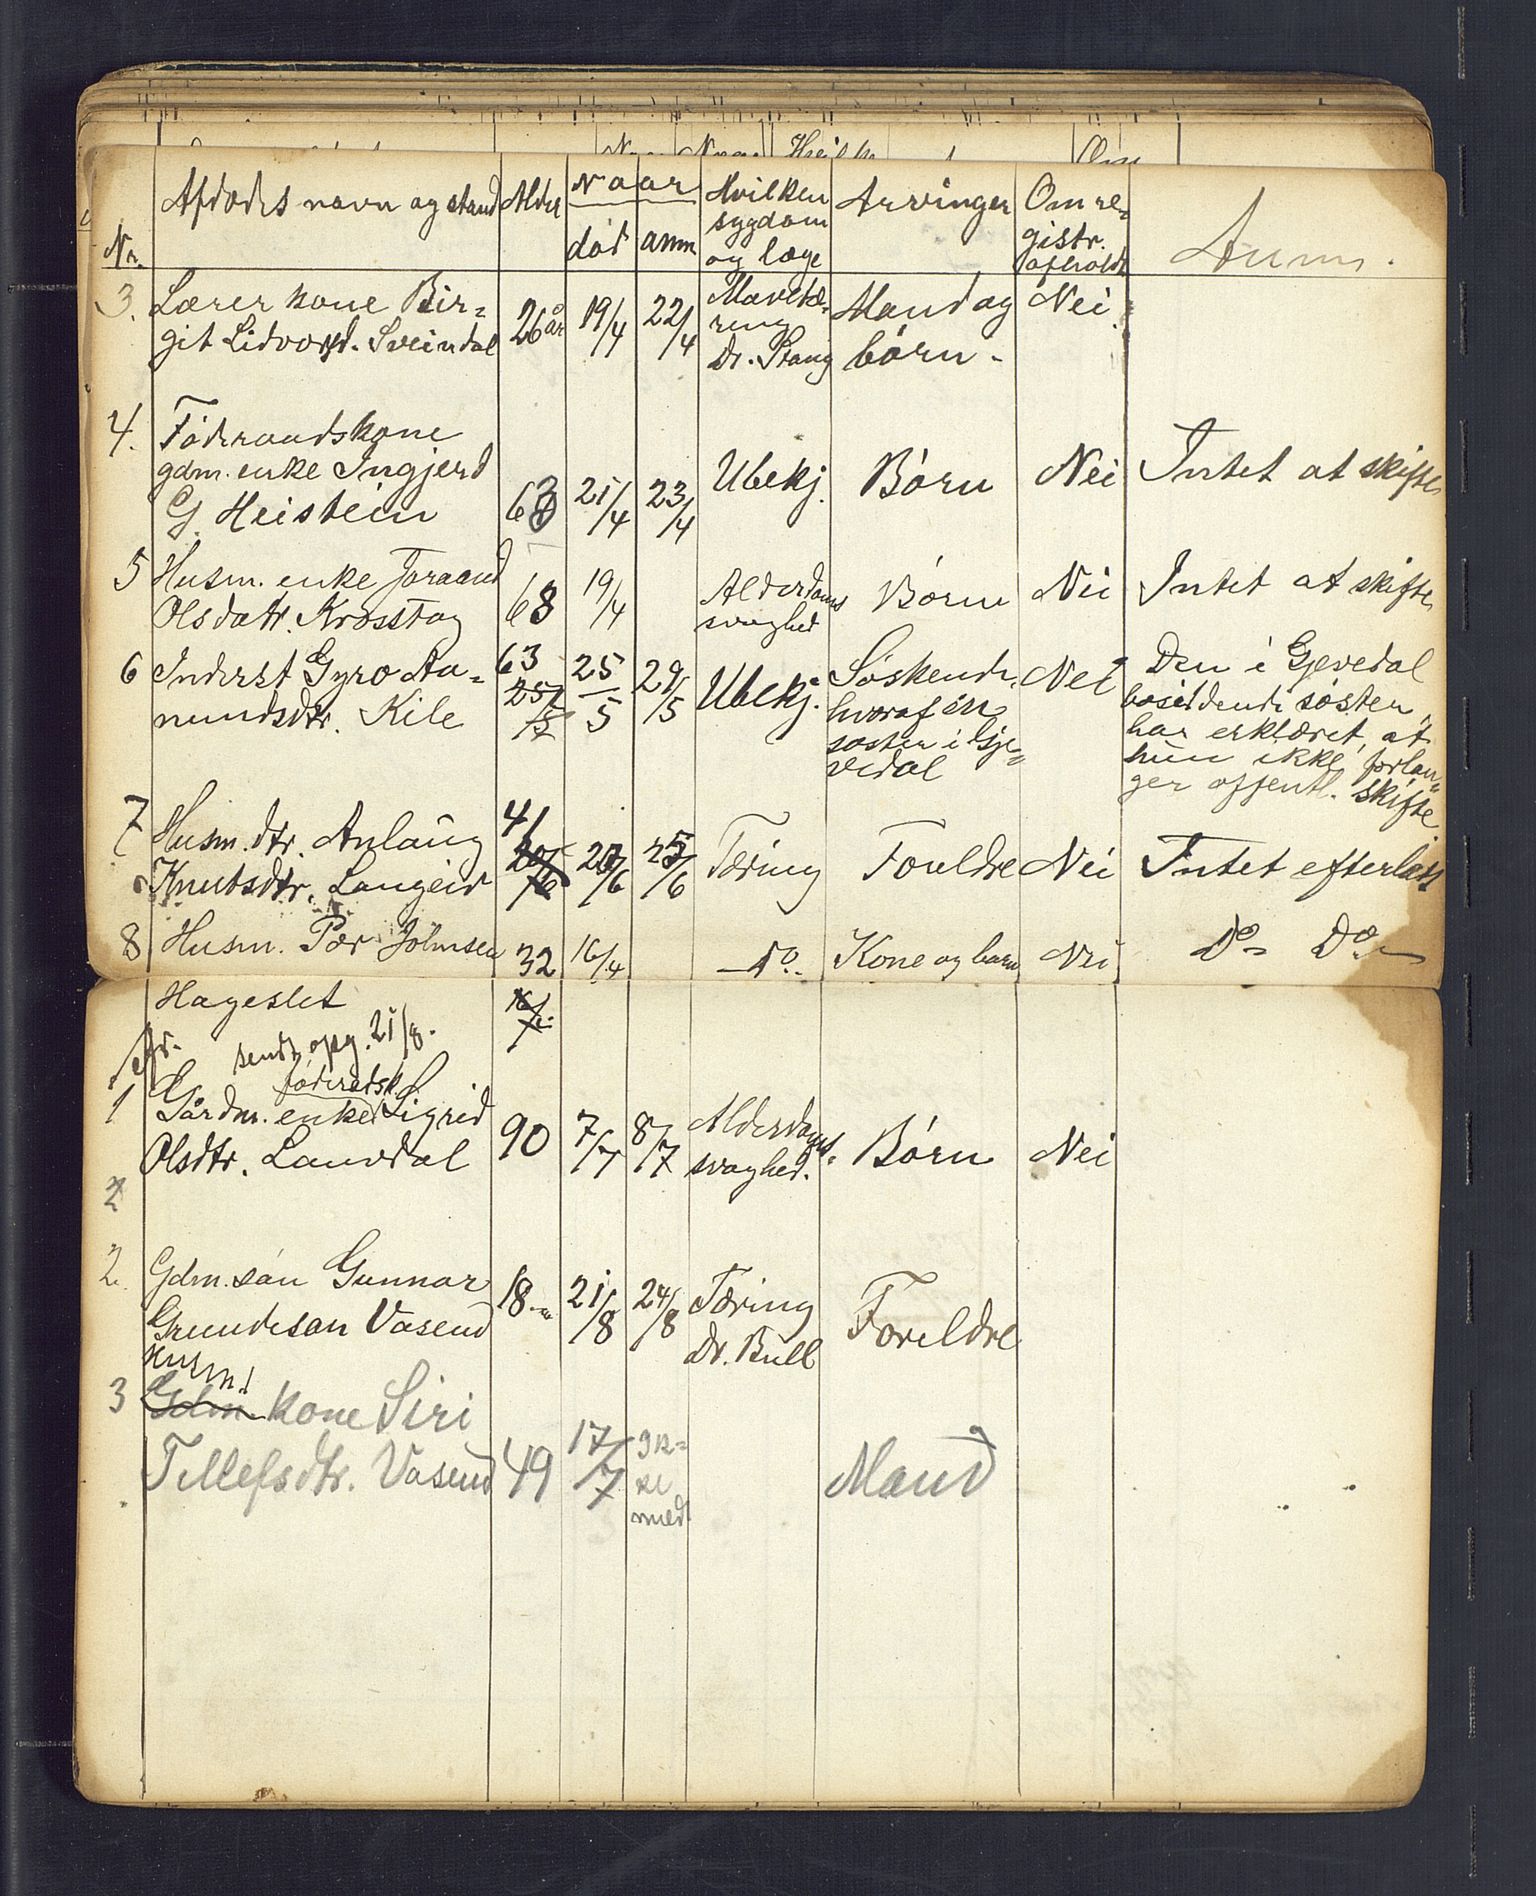 Nr. Afdødes navn og stand Alder Naar død anm Hvilken sygdom og læge Arvinger Om registr. afholdt Anm.
3. Lærer kone Bir=
git Lidvorsd. Sveindal 26 år 19/4 22/4 Mavetæ=
ring
Dr. Stang Mand og
børn. Nei
4. Føderaadskone
gdm. enke Ingjerd
G. Heistein 63 21/4 23/4 Ubekj. Børn Nei Intet at skifte
5 Husm. enke Joraand
Olsdatr. Krosstøg 68 19/4 Alderdoms
svaghed Børn Nei Intet at skifte
6 Inderst Gyro Au=
nundsdtr. Kile 63 25/5 29/5 Ubekj. Søskende,
hvoraf en
søster i Gje=
vedal Nei Den i Gjevedal
bosiddende søster
har erklæret, at
hun ikke forlan=
ger offentl. skifte.
7 Husm. dtr. Anlaug
Knutsdtr. Langeid 41 20/6 25/6 Tæring Foreldre Nei Intet efterladt
8 Husm. Pær Johnsen 32 16/4 Do. Kone og barn Nei Do Do
Hageslet
sendt opg. 21/8.
føderadsk.
1 Gårdm. enke Sigrid
Olsdtr. Lauvdal 90 7/7 8/7 Alderdoms.
svaghed. Børn Nei
2
2. Gdm. søn Gunnar
Grundesøn Vasend 18 21/8 24/8 Tæring
Dr. Bull Foreldre
Husm.
3 Gdm. kone Siri
Tellefsdtr. Vasend 49 17/7 ik=
ke
meldt Mand